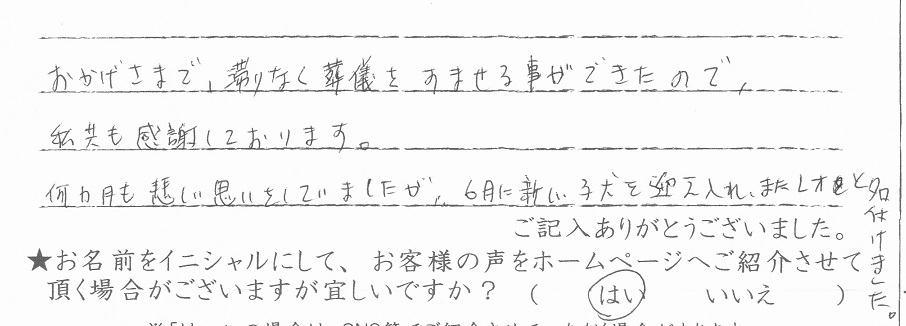 おかげさまで、滞りなく葬儀をすませる事ができたので、
私共も感謝しております。
何カ月も悲しい思いをしていましたが、6月に新しい子犬を迎え入れ、またレオと名付けました。
ご記入ありがとうございました。
★お名前をイニシャルにして、お客様の声をホームページへご紹介させて
頂く場合がございますが宜しいですか？（　はい　いいえ　）